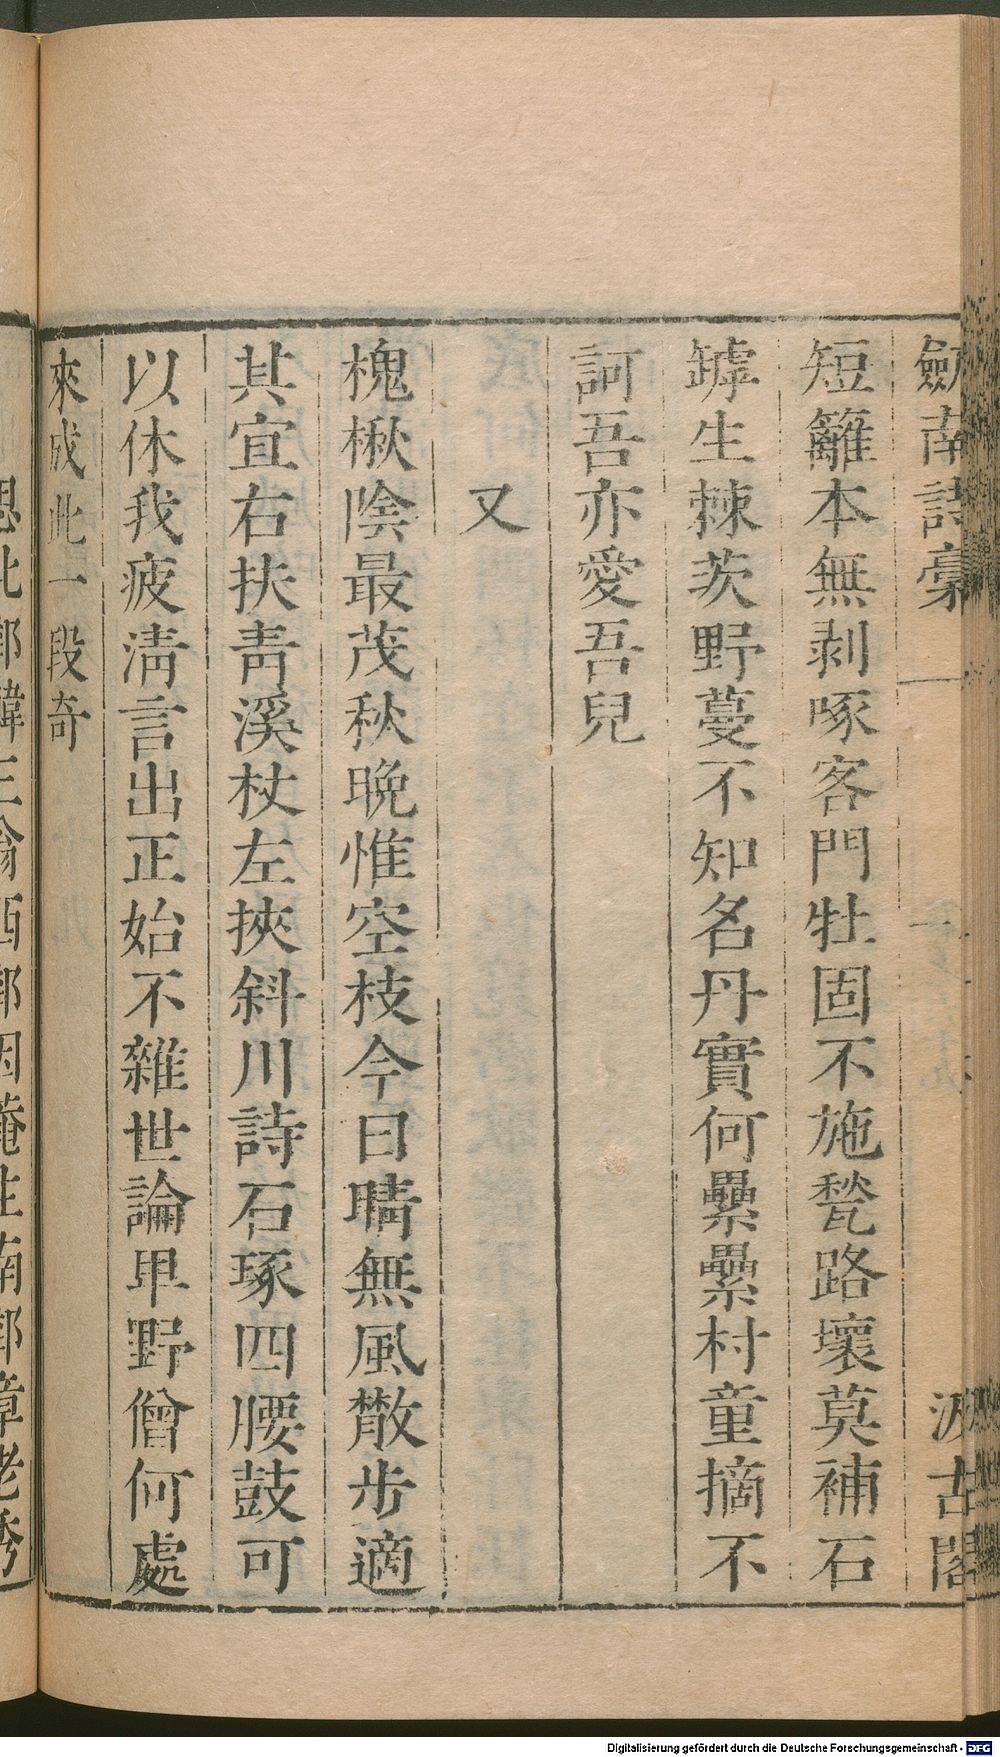 劒南詩稾 汲古閣
短籬本無剥啄客門牡固不施甃路壞莫補石
罅生棘茨野蔓不知名丹實何纍纍村童摘不
訶吾亦愛吾兒
又
槐楸隂最茂秋晚惟空枝今日晴無風散步適
其宜右扶靑溪杖左挾斜川詩石琢四腰鼓可
以休我疲淸言出正始不雜世論卑野僧何處
來成此一段奇
Digitalisierung gefördert durch die Deutsche Forschungsgemeinschaft - DFG